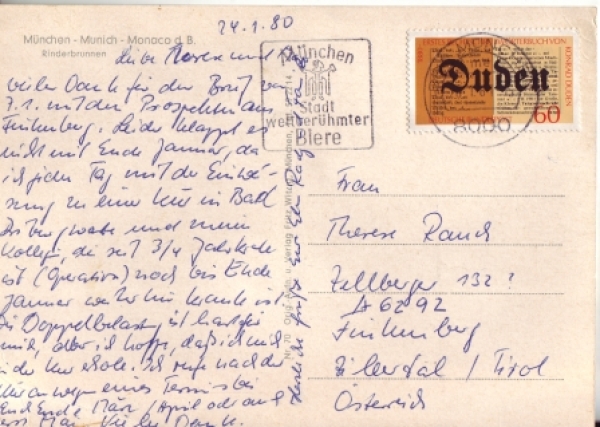 24.1.80
München - Munich - Monaco d. B.
Rinderbrunnen
Liebe Therese und
vielen Dank für den Brief vom
7.1. mit den Prospekten aus
Finkenberg. Leider klappt es
nicht mit Ende Januar, da
ich jeden Tag mit der Einwei-
sung zu einer Kur in Bad
rechne und mein
Kollege, der seit 3/4 Jahr krank
ist (Operation) noch bis Ende
Januar weiterhin krank ist.
Die Doppelbelastung ist hart für
mich, aber ich hoffe, daß ich mich
in der Kur erhole. Ich rufe nach der
Kur an wegen eines Termins bei
Euch Ende März / April oder auch
erst Mai. Vielen Dank.
Herzliche Grüße Euer
München
Stadt
weltberühmter
Biere
8000
KONRAD DUDEN
Duden
60
Frau
Therese Rauch
Zellberger 132?
A 6292
Finkenberg
Zillertal / Tirol
Österreich